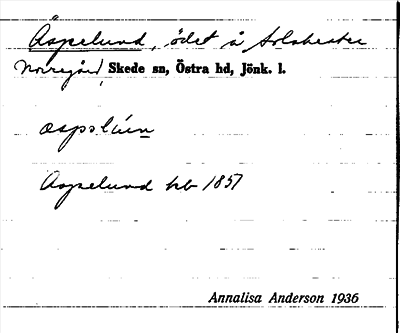 Äspelund, ödet å Solskester
Norregård, Skede sn, Östra hd, Jönk. l.
æspəlúṉ
Aspelund hb 1857
Annalisa Anderson 1936